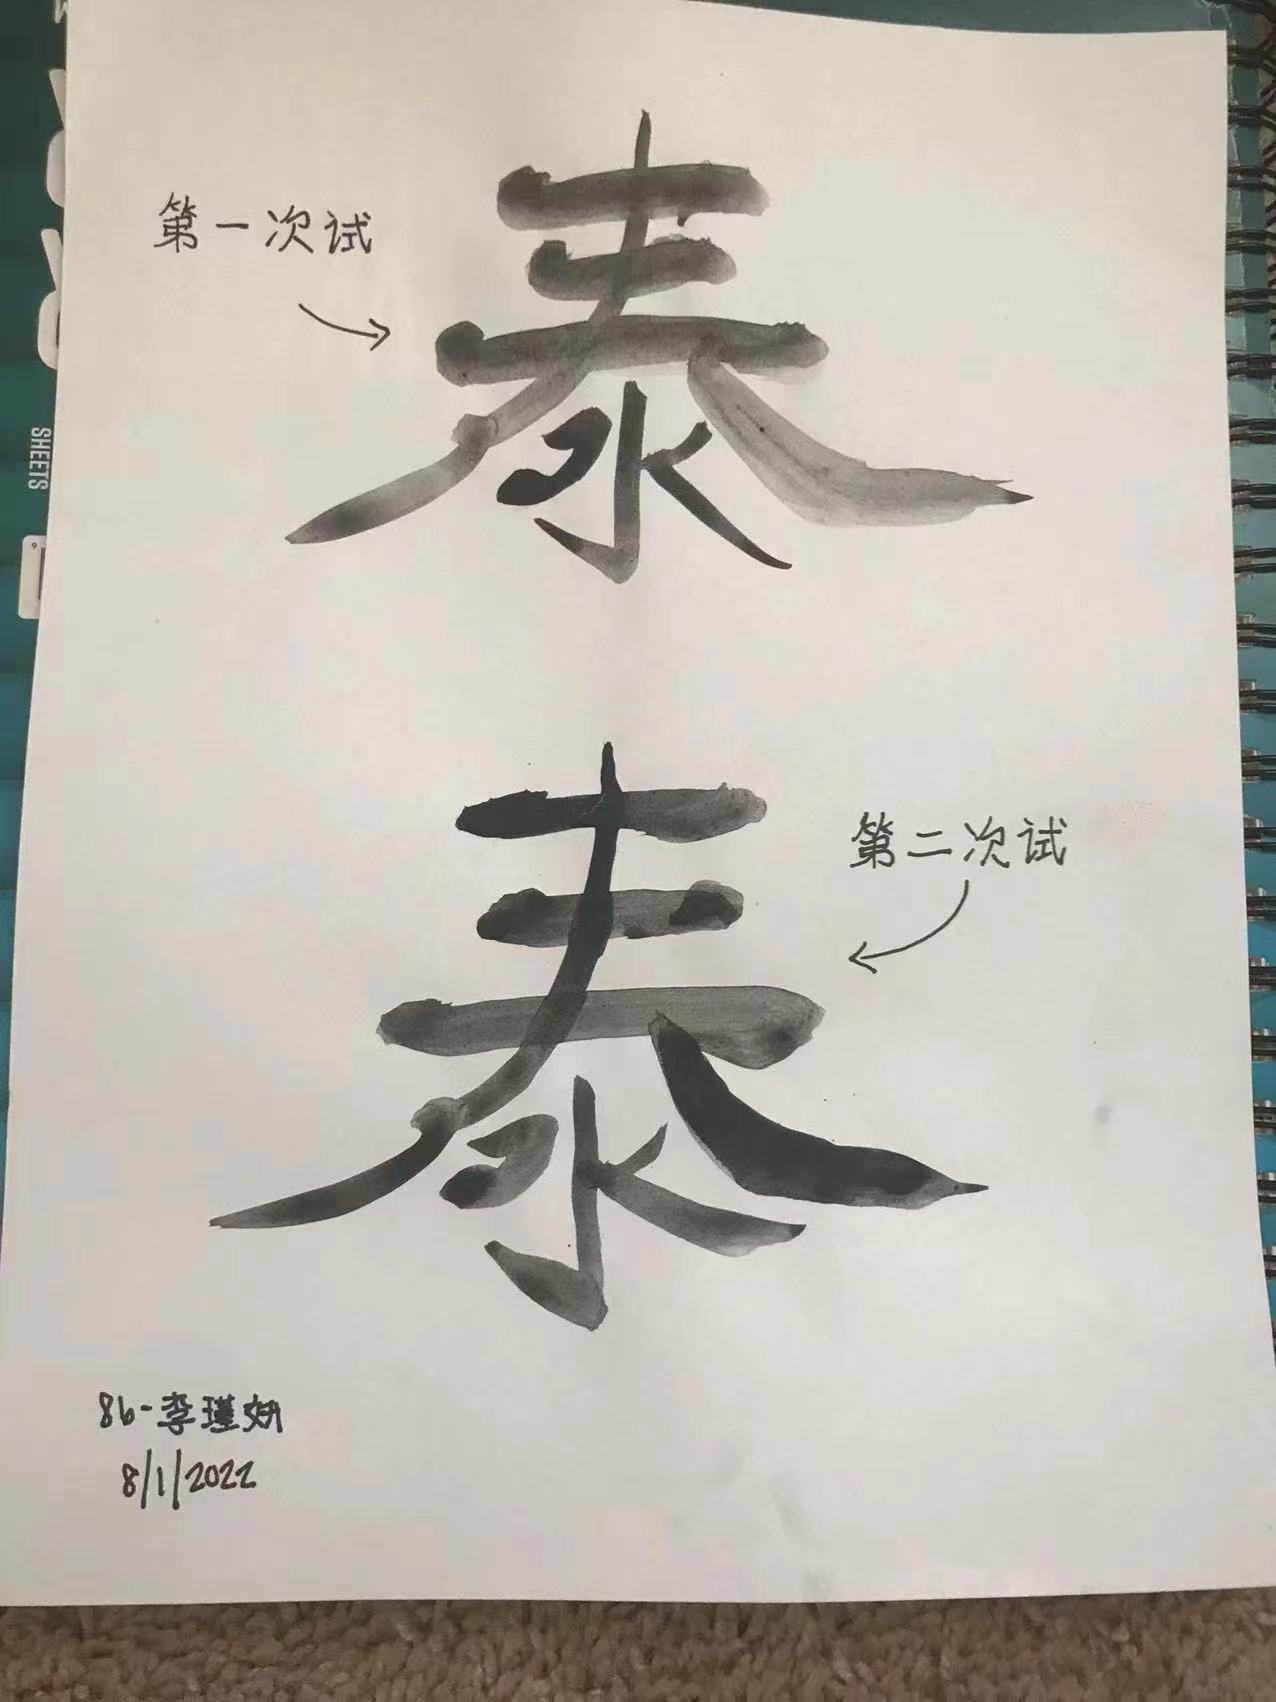 第一次试
泰
泰
第二次试
8b-李瑾妍
8/1/2022
SHEETS